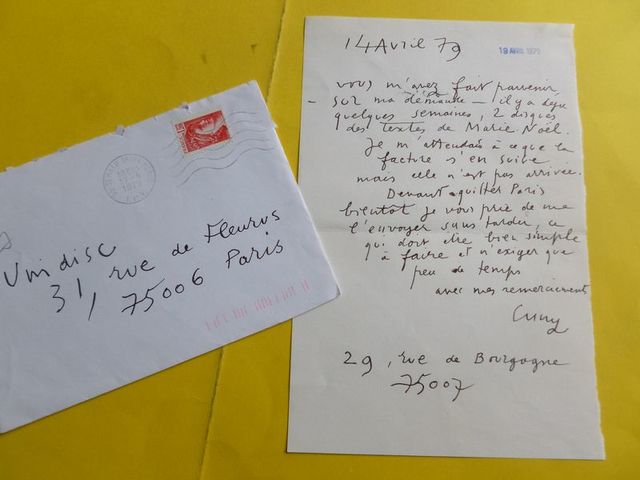 14 Avril 79
19 AVRIL 1979
vous m'avez fait parvenir,
- sur ma demande - il y a déjà
quelques semaines, 2 disques
des textes de Marie Noël.
Je m'attendais à ce que la
facture s'en suive
mais elle n'est pas arrivée.
Devant quitter Paris
bientôt je vous prie de me
l'envoyer sans tarder, ce
qui doit être bien simple
à faire et n'exiger que
peu de temps
avec mes remerciements
Cuny
29, rue de Bourgogne
75007
Unidisc
31, rue de Fleurus
75006 Paris